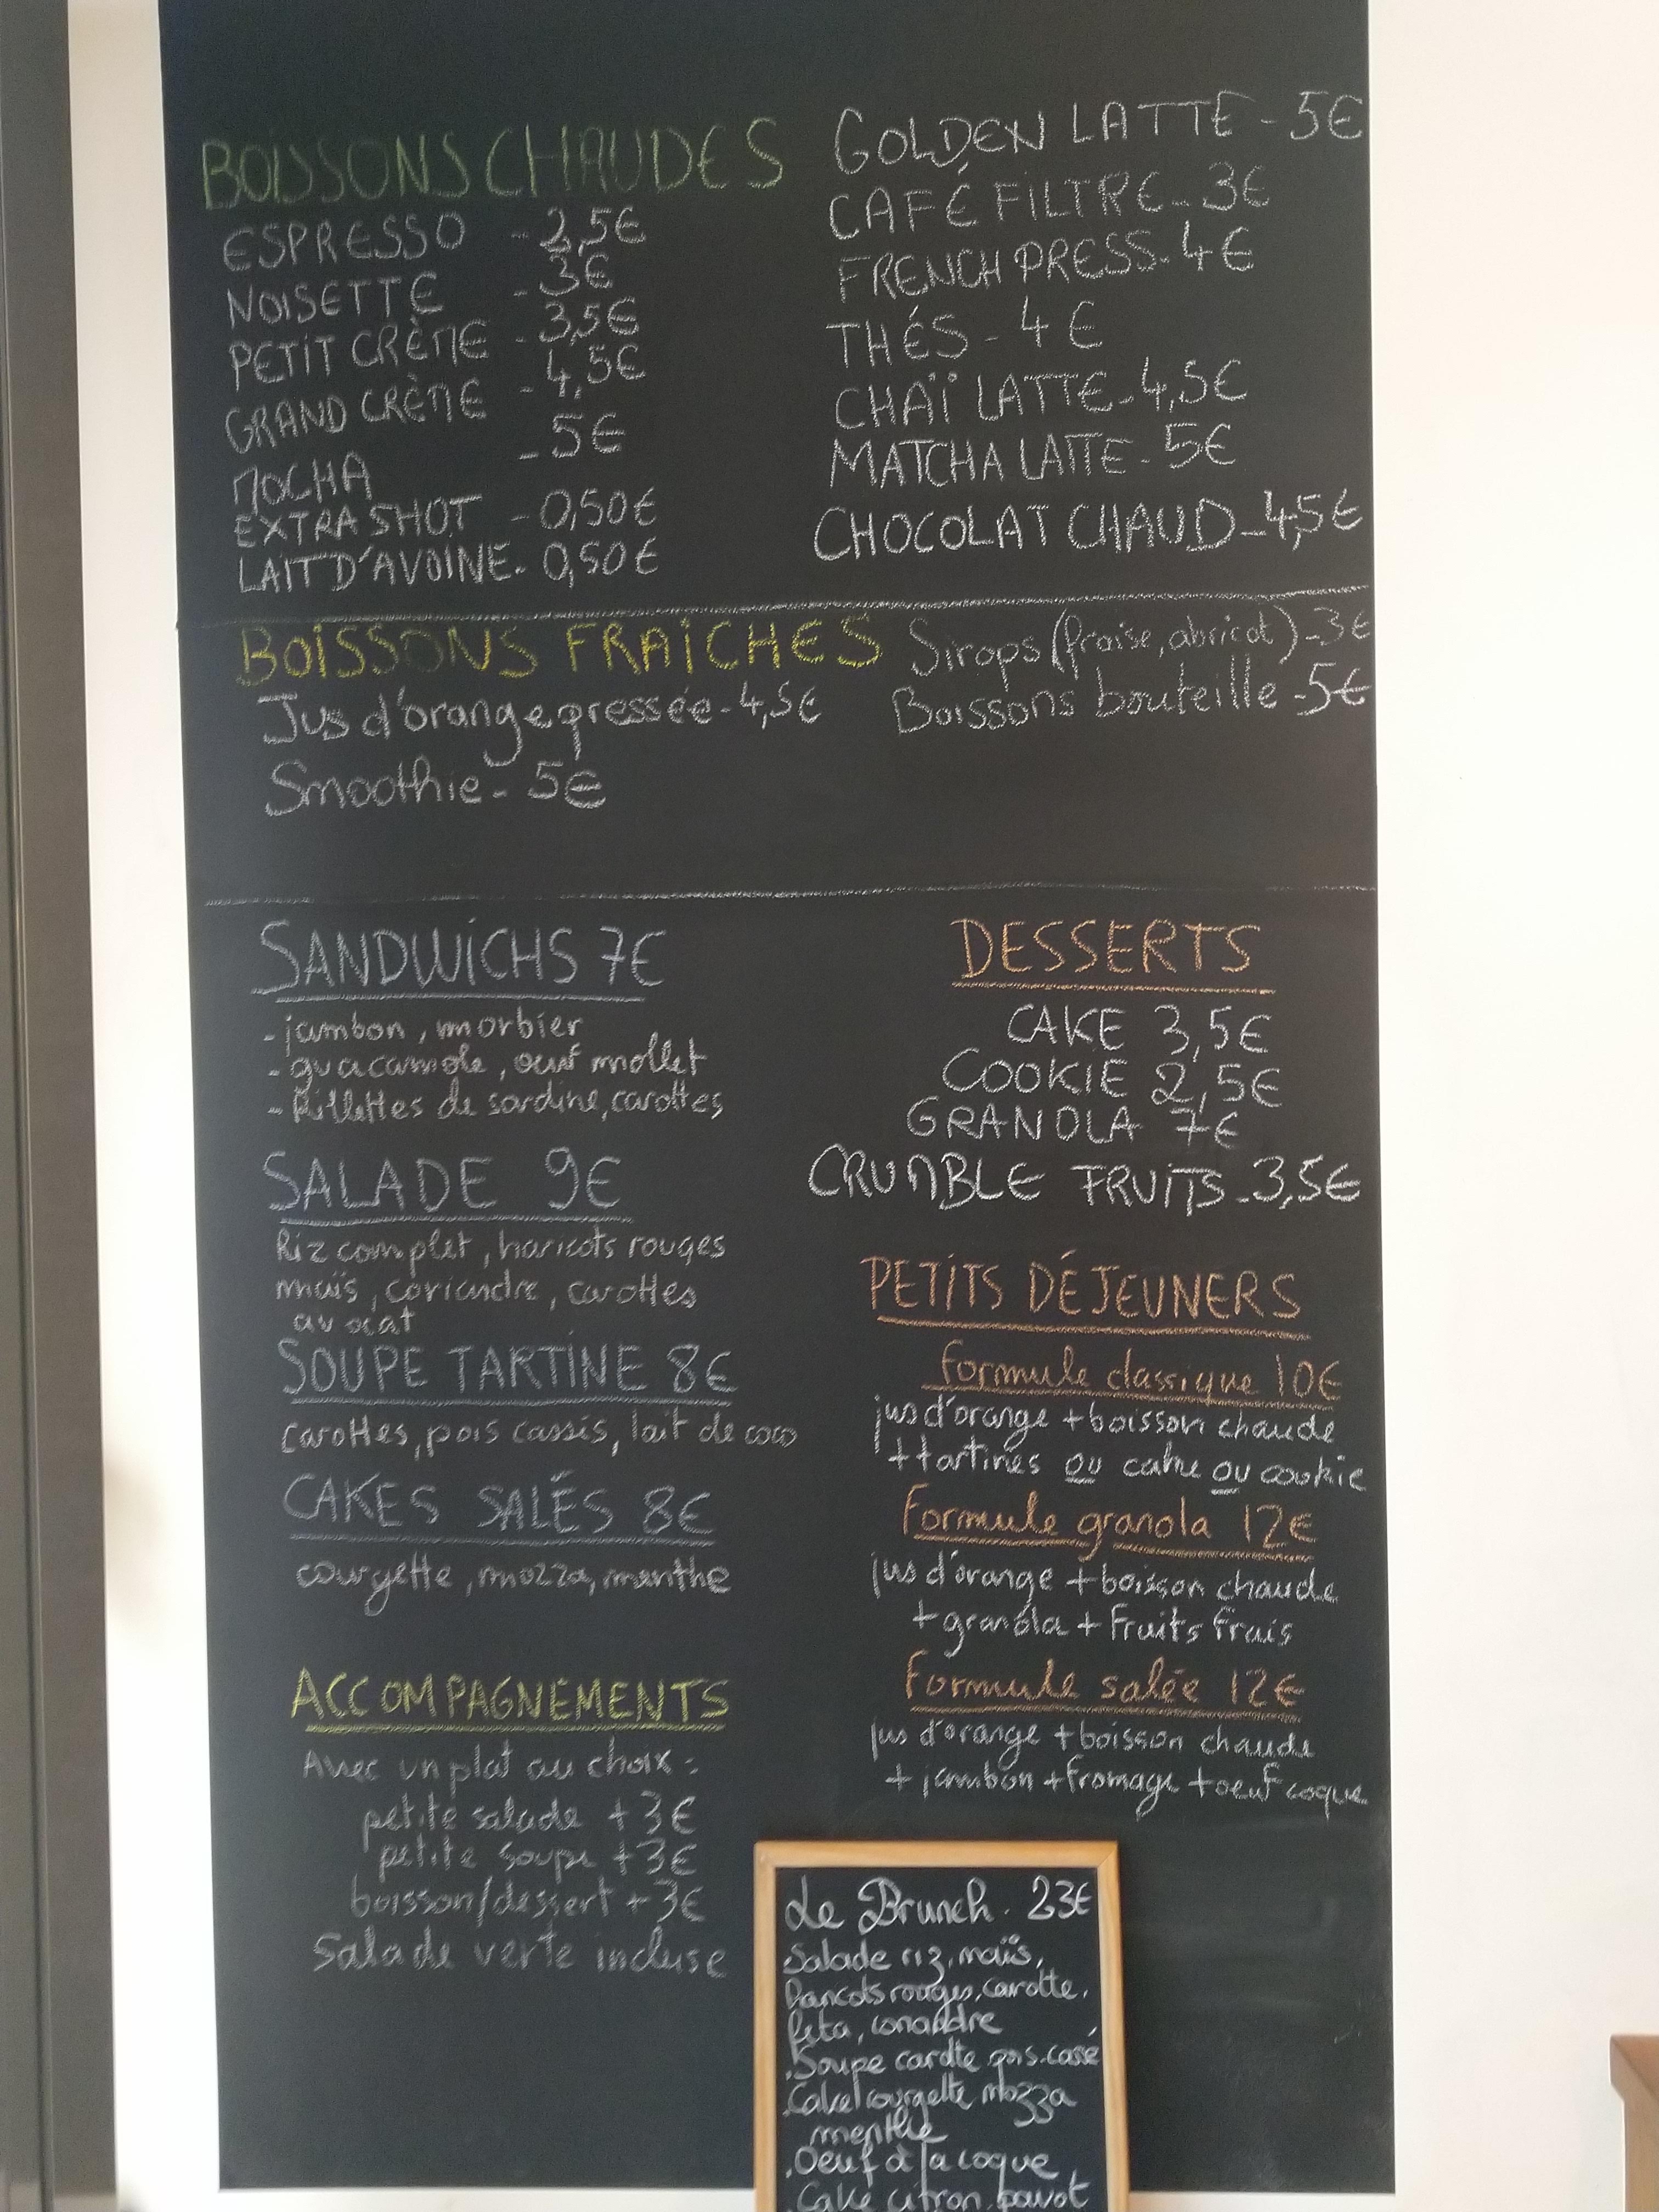 BOISSONS CHAUDES
ESPRESSO - 2,5€
NOISETTE - 3€
PETIT CRÈME - 3,5€
GRAND CRÈME - 4,5€
MOCHA - 5€
EXTRA SHOT - 0,50€
LAIT D'AVOINE - 0,50€
GOLDEN LATTE - 5€
CAFÉ FILTRE - 3€
FRENCH PRESS - 4€
THÉS - 4€
CHAÏ LATTE - 4,5€
MATCHA LATTE - 5€
CHOCOLAT CHAUD - 4,5€
BOISSONS FRAICHES
Jus d'orange pressée - 4,5€
Smoothie - 5€
Sirops (fraise, abricot) - 3€
Boissons bouteille - 5€
SANDWICHS 7€
- jambon, morbier
- guacamole, oeuf mollet
- Rillettes de sardine, carottes
SALADE 9€
Riz complet, haricots rouges
maïs, coriandre, carottes
avocat
SOUPE TARTINE 8€
carottes, pois cassis, lait de coco
CAKES SALÉS 8€
courgette, mozza, menthe
ACCOMPAGNEMENTS
Avec un plat au choix :
petite salade + 3€
petite soupe + 3€
boisson/dessert + 3€
Salade verte incluse
DESSERTS
CAKE 3,5€
COOKIE 2,5€
GRANOLA 7€
CRUMBLE FRUITS - 3,5€
PETITS DÉJEUNERS
Formule classique 10€
jus d'orange + boisson chaude
+ tartines ou cake ou cookie
Formule granola 12€
jus d'orange + boisson chaude
+ granola + Fruits frais
Formule salée 12€
jus d'orange + boisson chaude
+ jambon + fromage + oeuf coque
Le Brunch . 23€
Salade riz, maïs,
haricots rouges, carotte,
feta, coriandre
.Soupe carotte pois-cassé
.Cake courgette mozza
menthe
.Oeuf à la coque
.Cake citron pavot